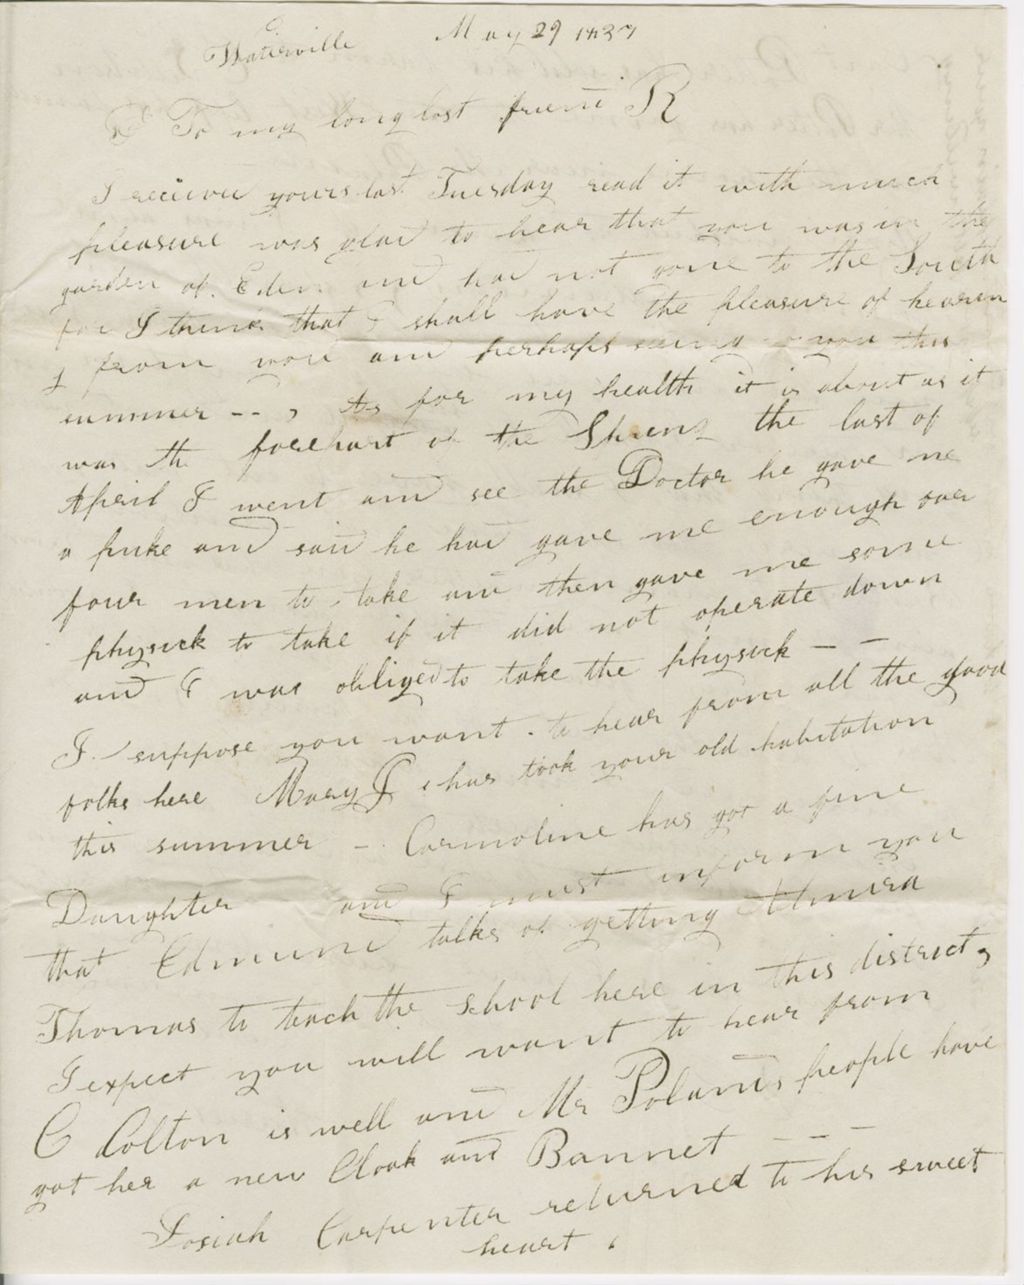 Waterville May 29 1837
To my long lost friend R
I recieved yours last Tuesday read it with much
pleasure was glad to hear that you was in the
garden of Eden and had not gone to the South
for I think that I shall have the pleasure of hearin
g from you and perhaps seing you this
summer -- , As for my health it is about as it
was the forepart of the Spring the last of
April I went and see the Doctor he gave me
a puke and said he had gave me enough for
four men to take and then gave me some
physick to take if it did not operate down
and I was obliged to take the physick — —
I suppose you want to hear from all the good
folks here Mary J has took your old habitation
this summer – Carmoline has got a fine
Daughter and I must inform you
that Edmund talks of getting Almira
Thomas to teach the School here in this district,
I expect you will want to hear from
C Colton is well and Mr Polands people have
got her a new Cloak and Bonnet — — —
Josiah Carpenter returned to his sweet
heart .